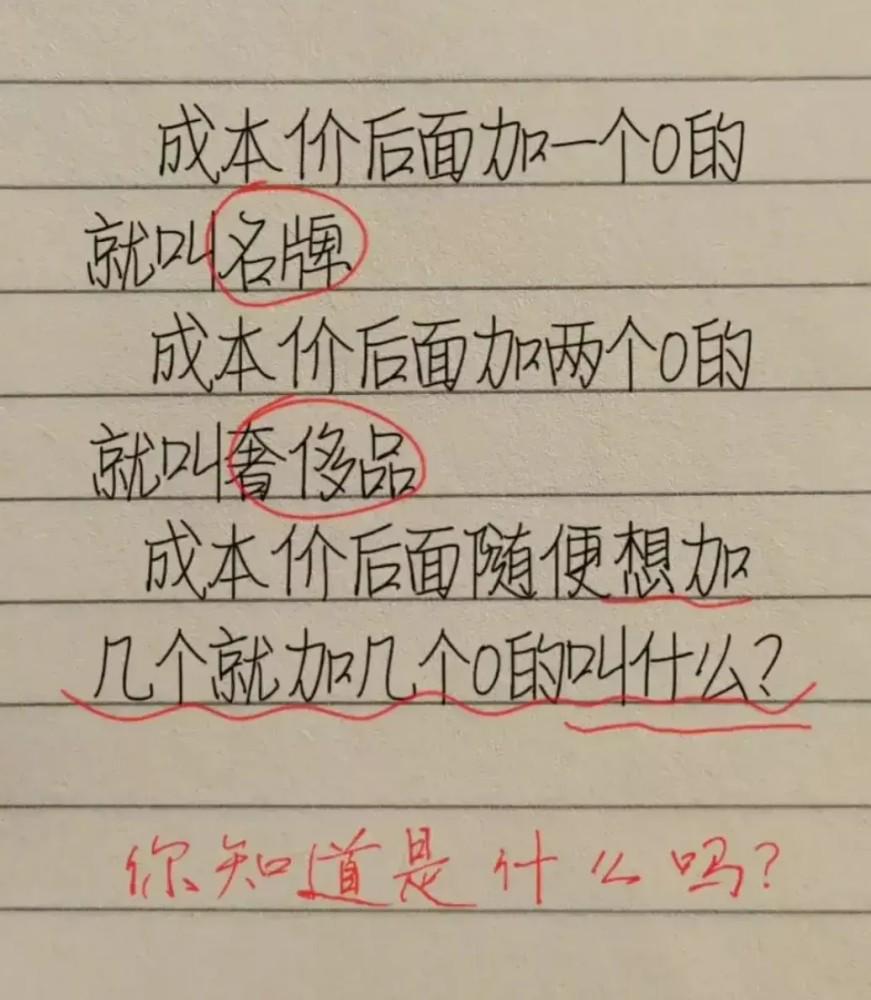 成本价后面加一个0的
就叫名牌
成本价后面加两个0的
就叫奢侈品
成本价后面随便想加
几个就加几个0的叫什么?
你知道是什么吗?